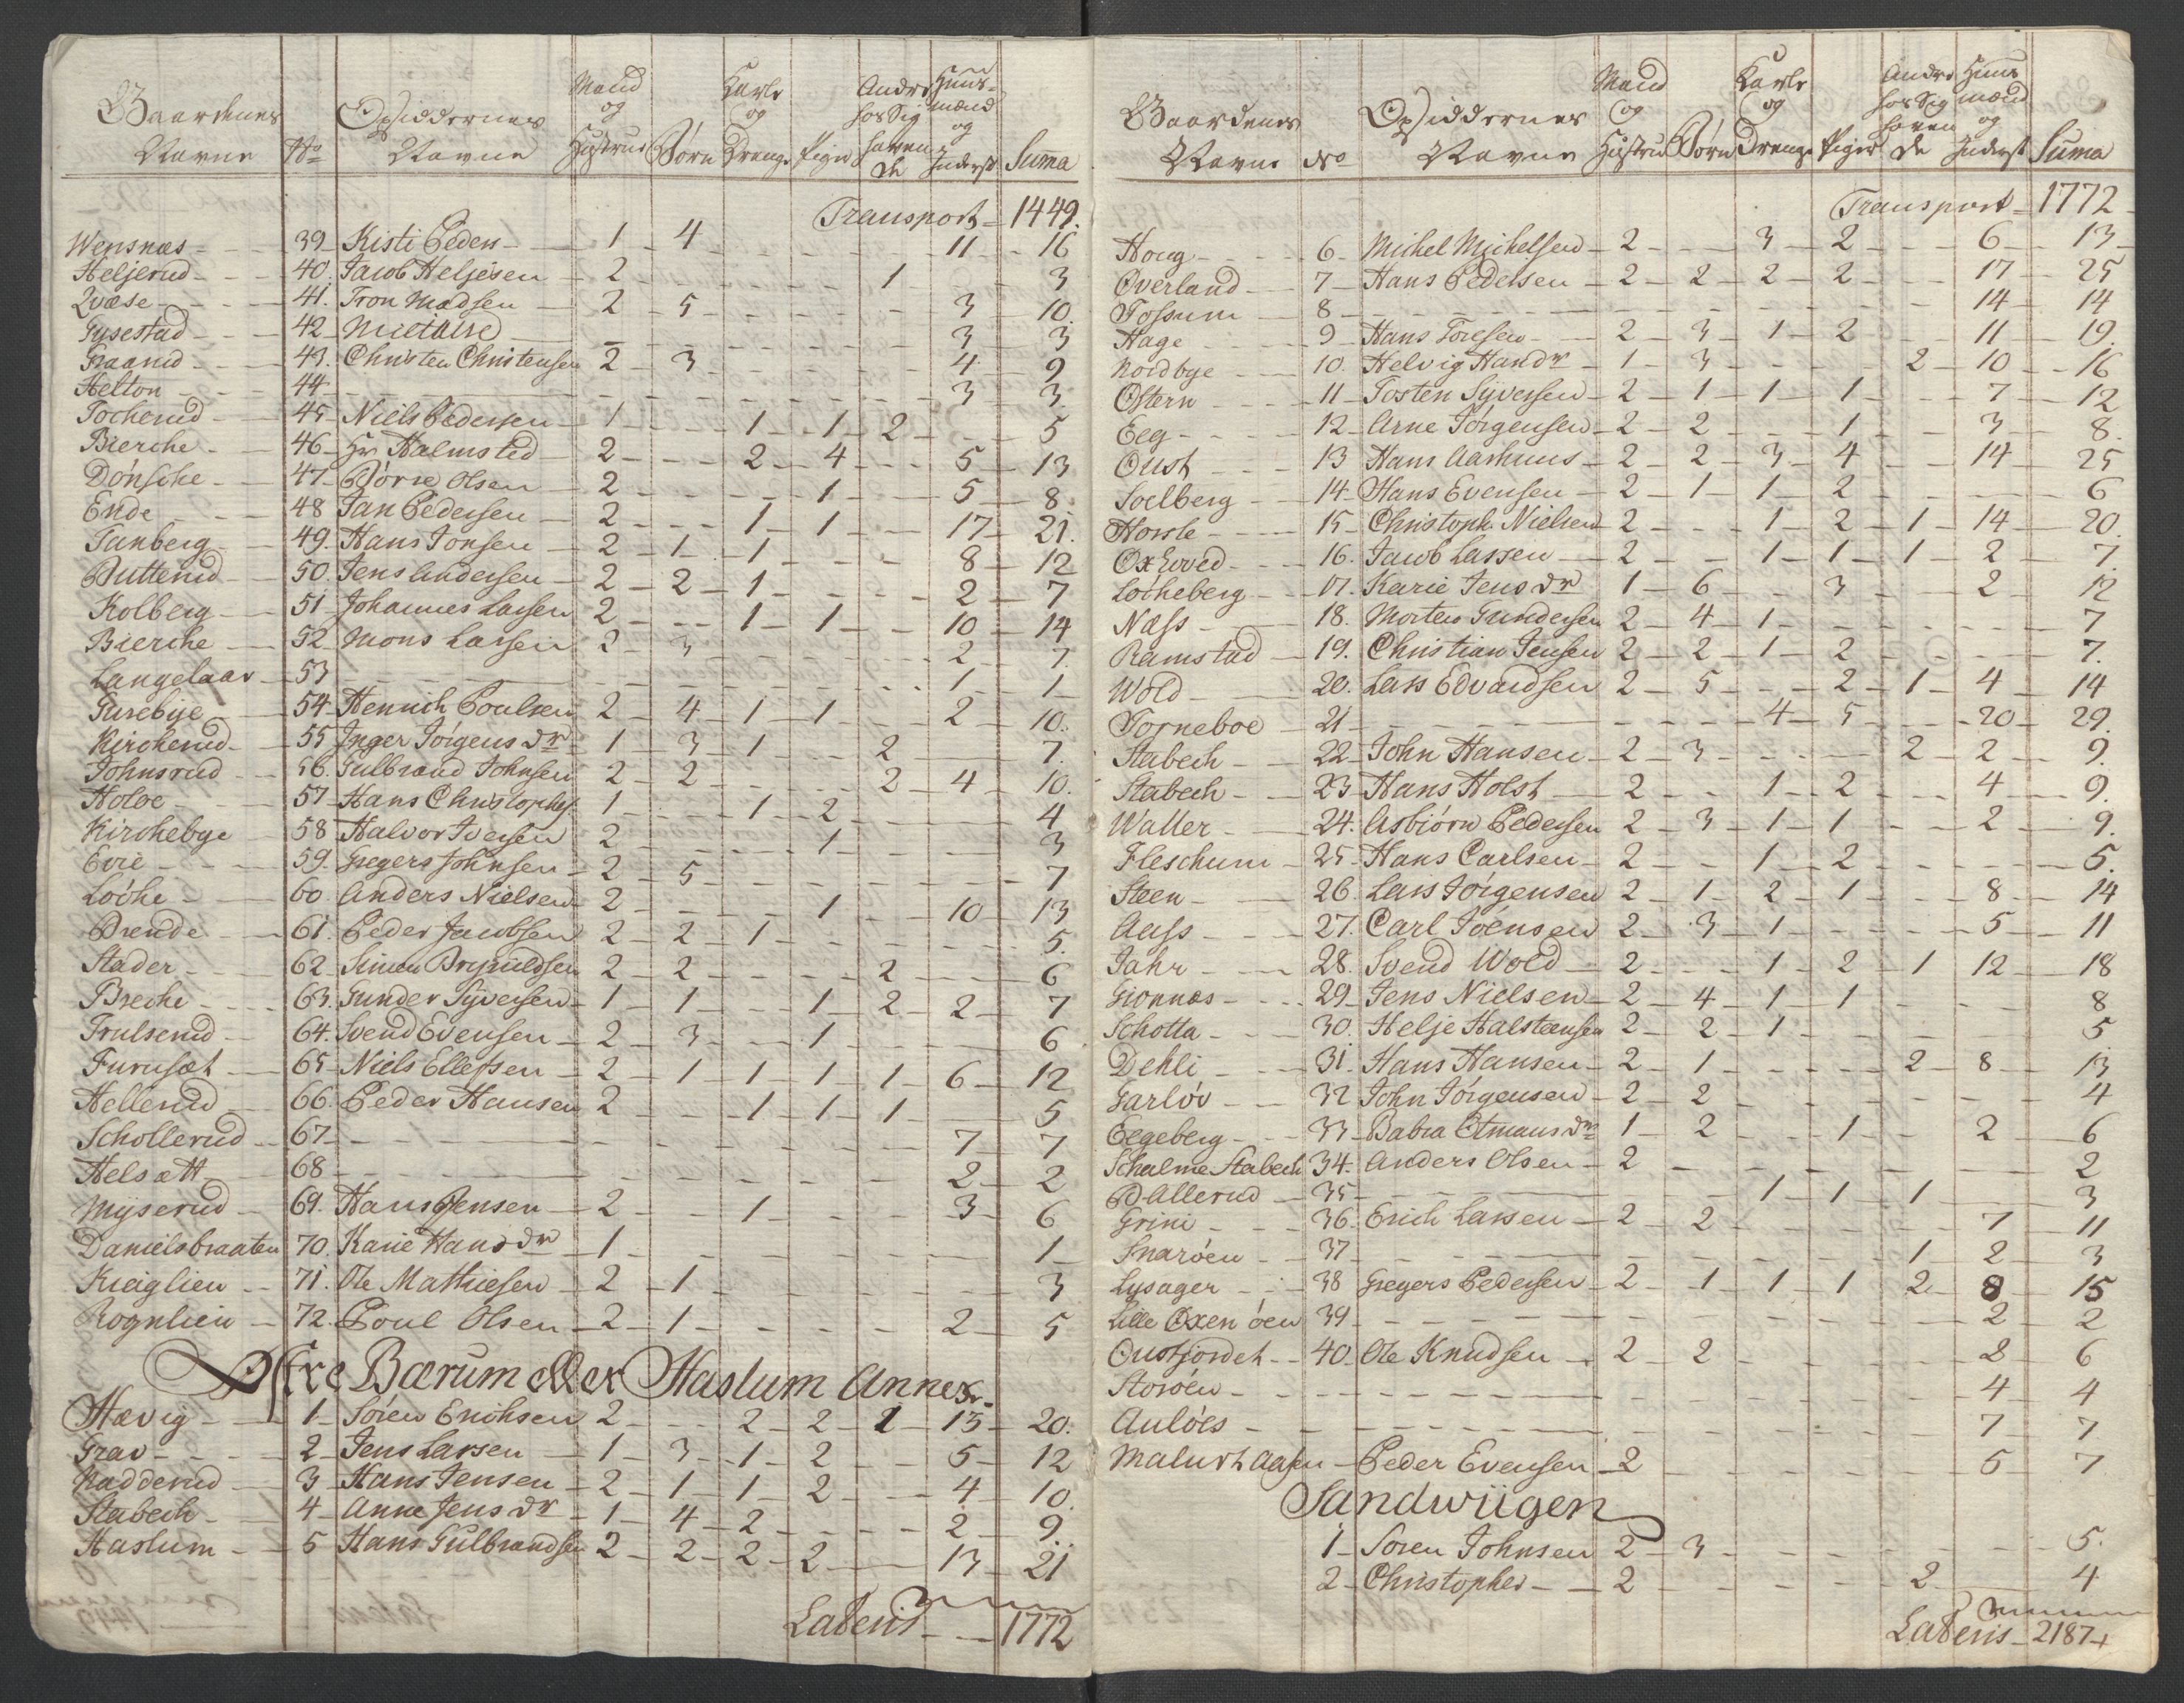 Gaardenes Navne No Opsiddernes Navne Mand og Hustrue Børn Karle og Drenge Piger Andre hos Sig havende Huus-mænd og Inderst Suma
Transport 1449.
Wensnæs 39 Kisti Peders 1 4 11 16
Heljerud 40. Jacob Heljesen 2 1 3
Qvæse 41. Tron Madsen 2 5 3 10.
Gysestad 42 Mietaise 3 3
Graanid 43. Christen Christensen 2 3 4 9
Helton 44 3 3.
Tocherud 45 Niels Pedersen 1 1 1 2 5
Bierche 46 Hr Halmsted 2 2 4 5 13
Dønsche 47 Børre Olsen 2 1 5 8
Ende 48 Jan Pedersen 2 1 1 17 21.
Tanberg 49. Hans Jonsen 2 1 1 8 12
Butterud 50. Jens Andersen 2 2 1 2 7
Kolberg 51 Johannes Larsen 2 1 1 10 14
Bierche 52 Mons Larsen 2 3 2 7.
Langelaar 53 1 1
Gusebye 54 Henrich Poulsen 2 4 1 1 2 10.
Kircherud 55 Inger Jørgens dr 1 3 1 2 7.
Johnsrud 56. Gulbrand Johnsen 2 2 2 4 10.
Holoe 57 Hans Christophs. 1 1 2 4
Kirchebye 58 Halvor Iversen 2 1 3
Evie 59. Gregers Johnsen 2 5 7
Løche 60. Anders Nielsen 2 1 10 13
Brende 61. Peder Jacobsen 2 2 1 5.
Stader 62 Simen Brynildsen 2 2 2 6
Breche 63. Gunder Syversen 1 1 1 2 2 7
Trulserud 64. Svend Evensen 2 3 1 6
Furusæt 65 Niels Ellefsen 2 1 1 1 1 6 12
Hellerud 66. Peder Hansen 2 1 1 1 5
Schollerud 67 7 7
Helsætt 68 2 2
Myserud 69. Hans Jensen 2 1 3 6
Danielsbraaten 70. Karie Hans dr 1 1
Kraglien 71. Ole Mathiesen 2 1 3
Rognlien 72. Poul Olsen 2 1 2 5
Østre Bærum eller Haslum Annex.
Høvig 1 Søren Erichsen 2 2 2 1 13 20.
Grav 2 Jens Larsen 1 3 1 2 5 12
Nadderud 3 Hans Jensen 2 1 1 2 4 10.
Stabech 4 Anne Jens dr 1 4 2 2 9.
Haslum 5 Hans Gulbrandsen 2 2 2 2 13 21
Lateris 1772
Gaardenes Navne No Opsiddernes Navne Mand og Hustrue Børn Karle og Drenge Piger Andre hos Sig havende Huus mænd og Inderst Suma
Transport 1772
Houg 6 Michel Michelsen 2 3 2 6 13
Øverland 7 Hans Pedersen 2 2 2 2 17 25
Fossum 8 14 14
Hage 9 Hans Toresen 2 3 1 2 11 19.
Nordbye 10. Helvig Hans dr 1 3 2 10 16
Østern 11 Tosten Syversen 2 1 1 1 7 12
Eeg 12 Arne Jørgensen 2 2 1 3 8.
Oust 13 Hans Aarhuus 2 2 3 4 14 25
Soelberg 14 Hans Evensen 2 1 1 2 6
Horsle 15 Christoph. Nielsen 2 1 2 1 14 20.
Oxhoved 16. Jacob Larsen 2 1 1 1 2 7.
Løcheberg 17. Karie Jens dr 1 6 3 2 12
Næss 18. Morten Gundersen 2 4 1 7
Ramstad 19. Christian Jensen 2 2 1 2 7.
Wold 20. Lars Edvardsen 2 5 2 1 4 14
Torneboe 21 4 5 20 29.
Stabech 22 John Hansen 2 3 2 2 9.
Stabech 23 Hans Holst 2 1 2 4 9.
Waller 24. Asbiørn Pedersen 2 3 1 1 2 9.
Fleschum 25 Hans Carlsen 2 1 2 5.
Steen 26. Lars Jørgensen 2 1 2 1 8 14
Aass 27. Carl Joensen 2 3 1 5 11
Jahr 28. Svend Wold 2 1 2 1 12 18
Gionnæs 29 Jens Nielsen 2 4 1 1 8
Schotta 30. Helje Halsteensen 2 2 1 5
Dehli 31. Hans Hansen 2 1 2 8 13
Garløv 32 John Jørgensen 2 2 4
Eegeberg 33 Babra Otmans dr 1 2 1 2 6
Schalme Stabech 34. Anders Olsen 2 2
Ballerud 35 1 1 1 3
Grini 36. Erich Larsen 2 2 7 11
Snarøen 37 1 2 3
Lysager 38 Gregers Pedersen 2 1 1 1 2 8 15
Lille Oxen øen 39 2 2
Oustfjordet 40. Ole Knudsen 2 2 2 6
Storøen 4 4
Auløes 7 7
Malurt Aasen Peder Evensen 2 5 7
Sandwiigen
1 Soren Johnsen 2 3 5.
2 Christopher 2 2 4
Lateris 2187